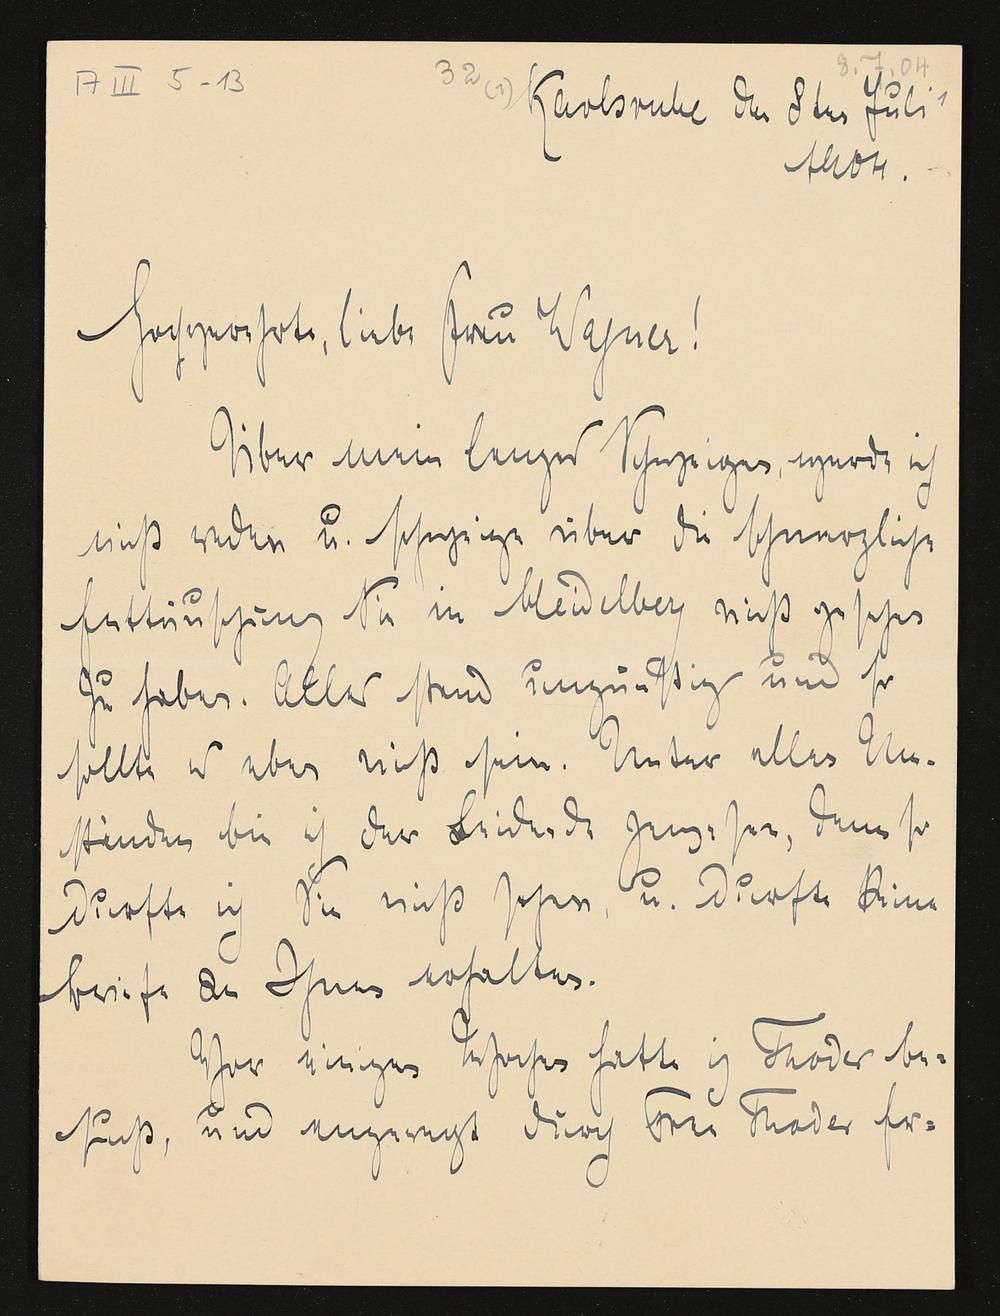 A III 5-13
32 (1)
8.7.04
Karlsruhe den 8ten Juli
1904.
Hochverehrte, liebe Frau Wagner!
Über mein langes Schweigen, werde ich
nicht reden u. schweige über die schmerzliche
Enttäuschung Sie in Heidelberg nicht gesehen
zu haben. Alles stand ungünstig und so
sollte es eben nicht sein. Unter allen Um-
ständen bin ich der Leidende gewesen, denn so
durfte ich Sie nicht sehen, u. durfte keine
Briefe an Ihnen erhalten.
Vor einigen Wochen hatte ich Thodes be=
sucht, und angeregt durch Frau Thodes Er=